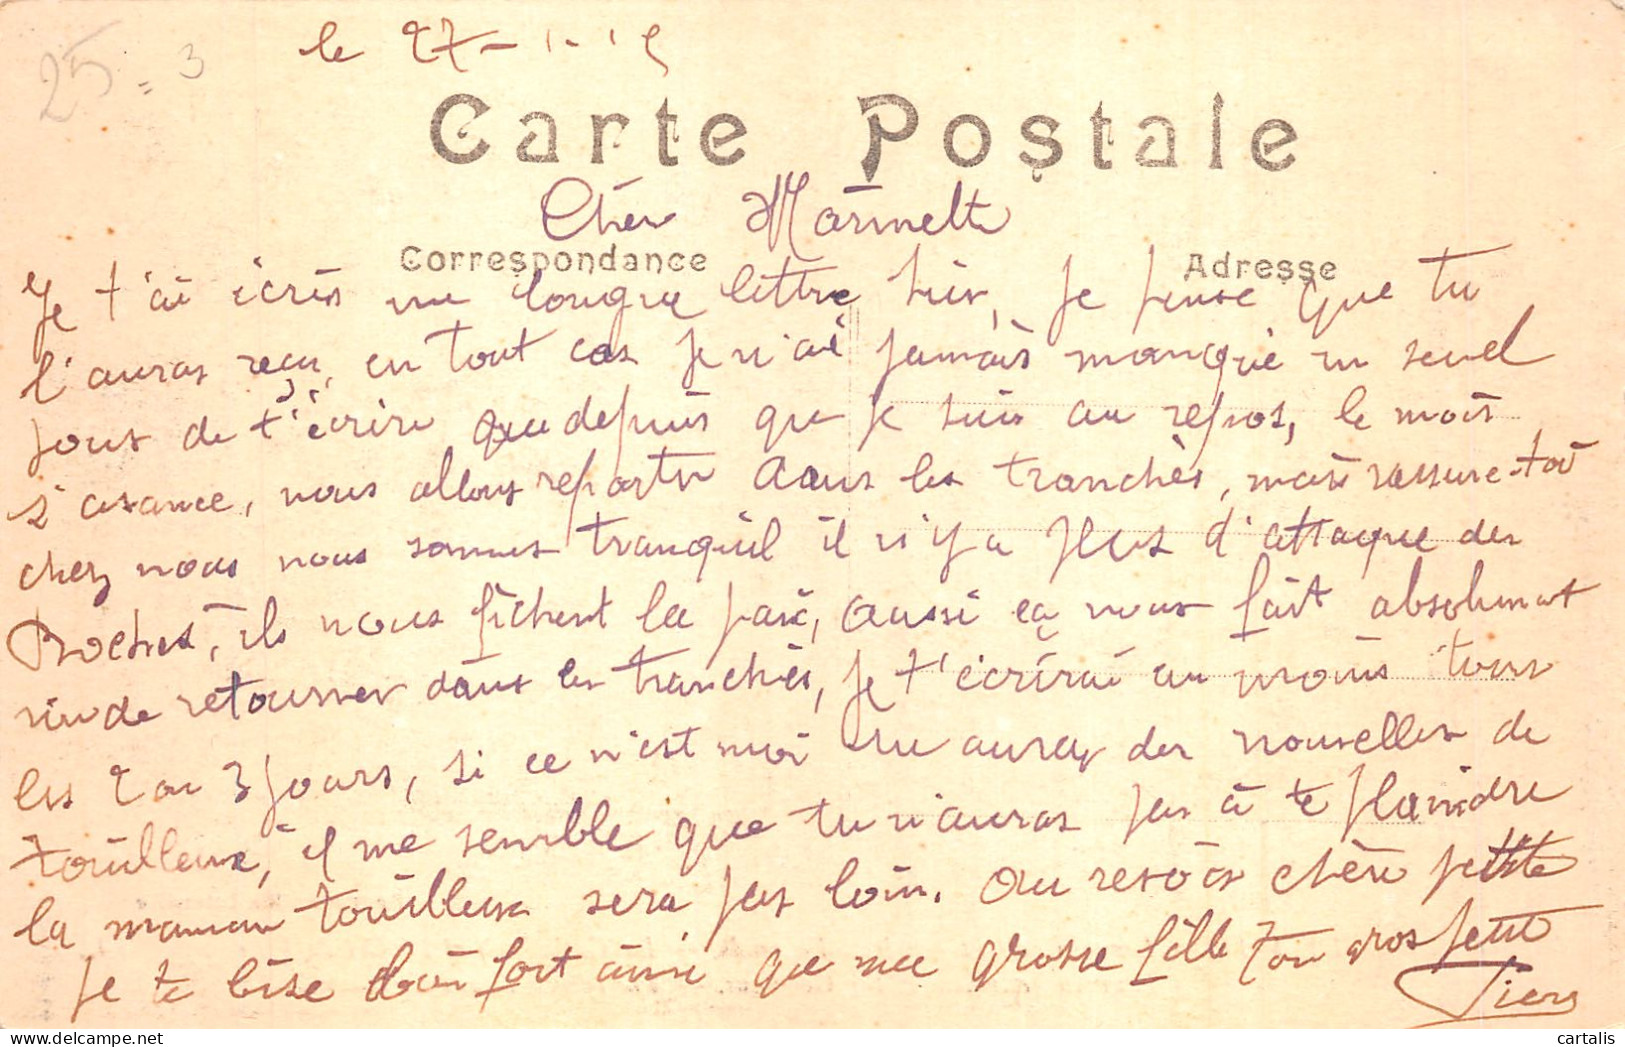 25 = 3
le 27-1-15
Carte Postale
Chér Marinette
Correspondance
Adresse
Je t'ai écris une longue lettre hier, je pense que tu
l'auras reçu, en tout cas je n'ai jamais manqué un seul
jour de t'écrire que depuis que je suis au repos, le mois
s'avance, nous allons repartir dans les tranchés, mais rassure-toi
chez nous nous sommes tranquil il n'y a plus d'attaque des
Boches, ils nous fichent la paix, aussi ça nous fait absolumnt
rien de retourner dans les tranchés, je t'écrirai au moins tous
les 2 ou 3 jours, si ce n'est moi tu auras des nouvelles de
touilleux, il me semble que tu n'auras pas à te plaindre
la maman touilleux sera pas loin. Au revoir chère petite
Je te bise bien fort ainsi que ma grosse fille ton gros petit
cartalis